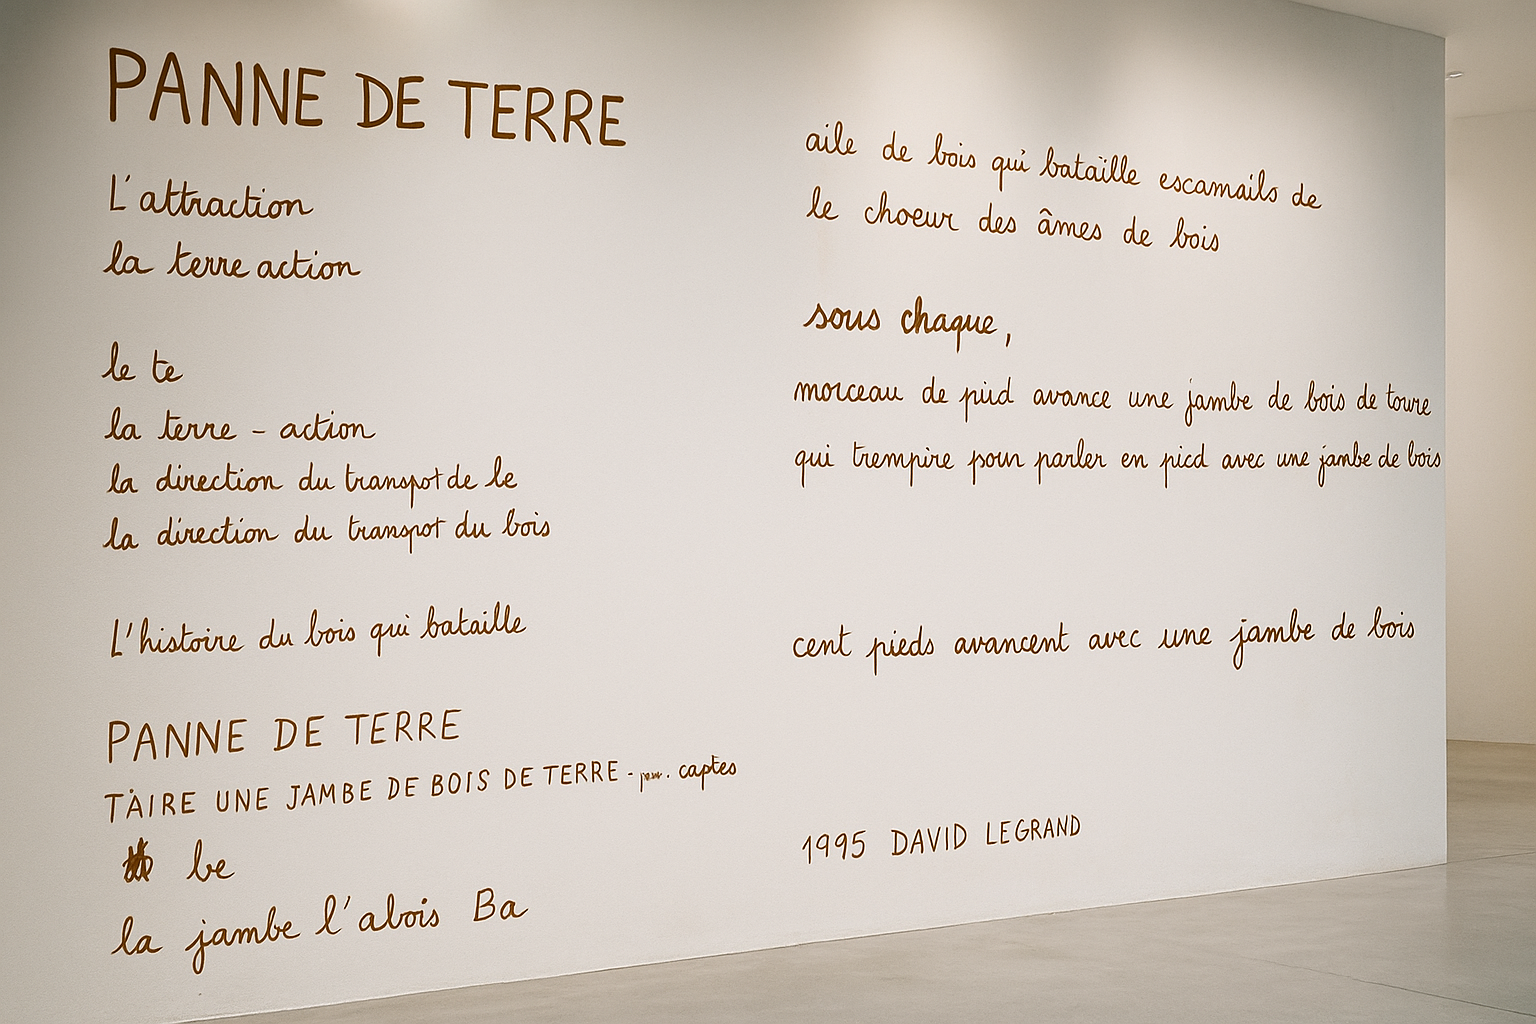 PANNE DE TERRE
L'attraction
la terre action
le te
la terre - action
la direction du transpot de le
la direction du transpot du bois
L'histoire du bois qui bataille
PANNE DE TERRE
TAIRE UNE JAMBE DE BOIS DE TERRE - captes
be
la jambe l'abois Ba
aile de bois qui bataille escamails de
le choeur des âmes de bois
sous chaque,
morceau de pied avance une jambe de bois de
qui trempire pour parler en pied avec une jambe de bois
cent pieds avancent avec une jambe de bois
1995 DAVID LEGRAND